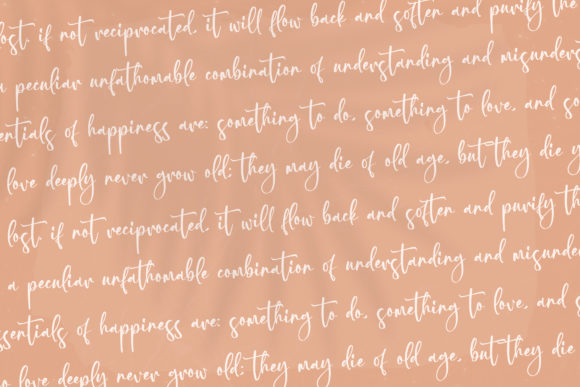 lost, if not reciprocated, it will flow back and soften and purify the
a peculiar unfathomable combination of understanding and misunders
entials of happiness are: something to do, something to love, and so
love deeply never grow old; they may die of old age, but they die y
lost, if not reciprocated, it will flow back and soften and purify th
a peculiar unfathomable combination of understanding and misunde
ssentials of happiness are: something to do, something to love, and s
o love deeply never grow old; they may die of old age, but they die